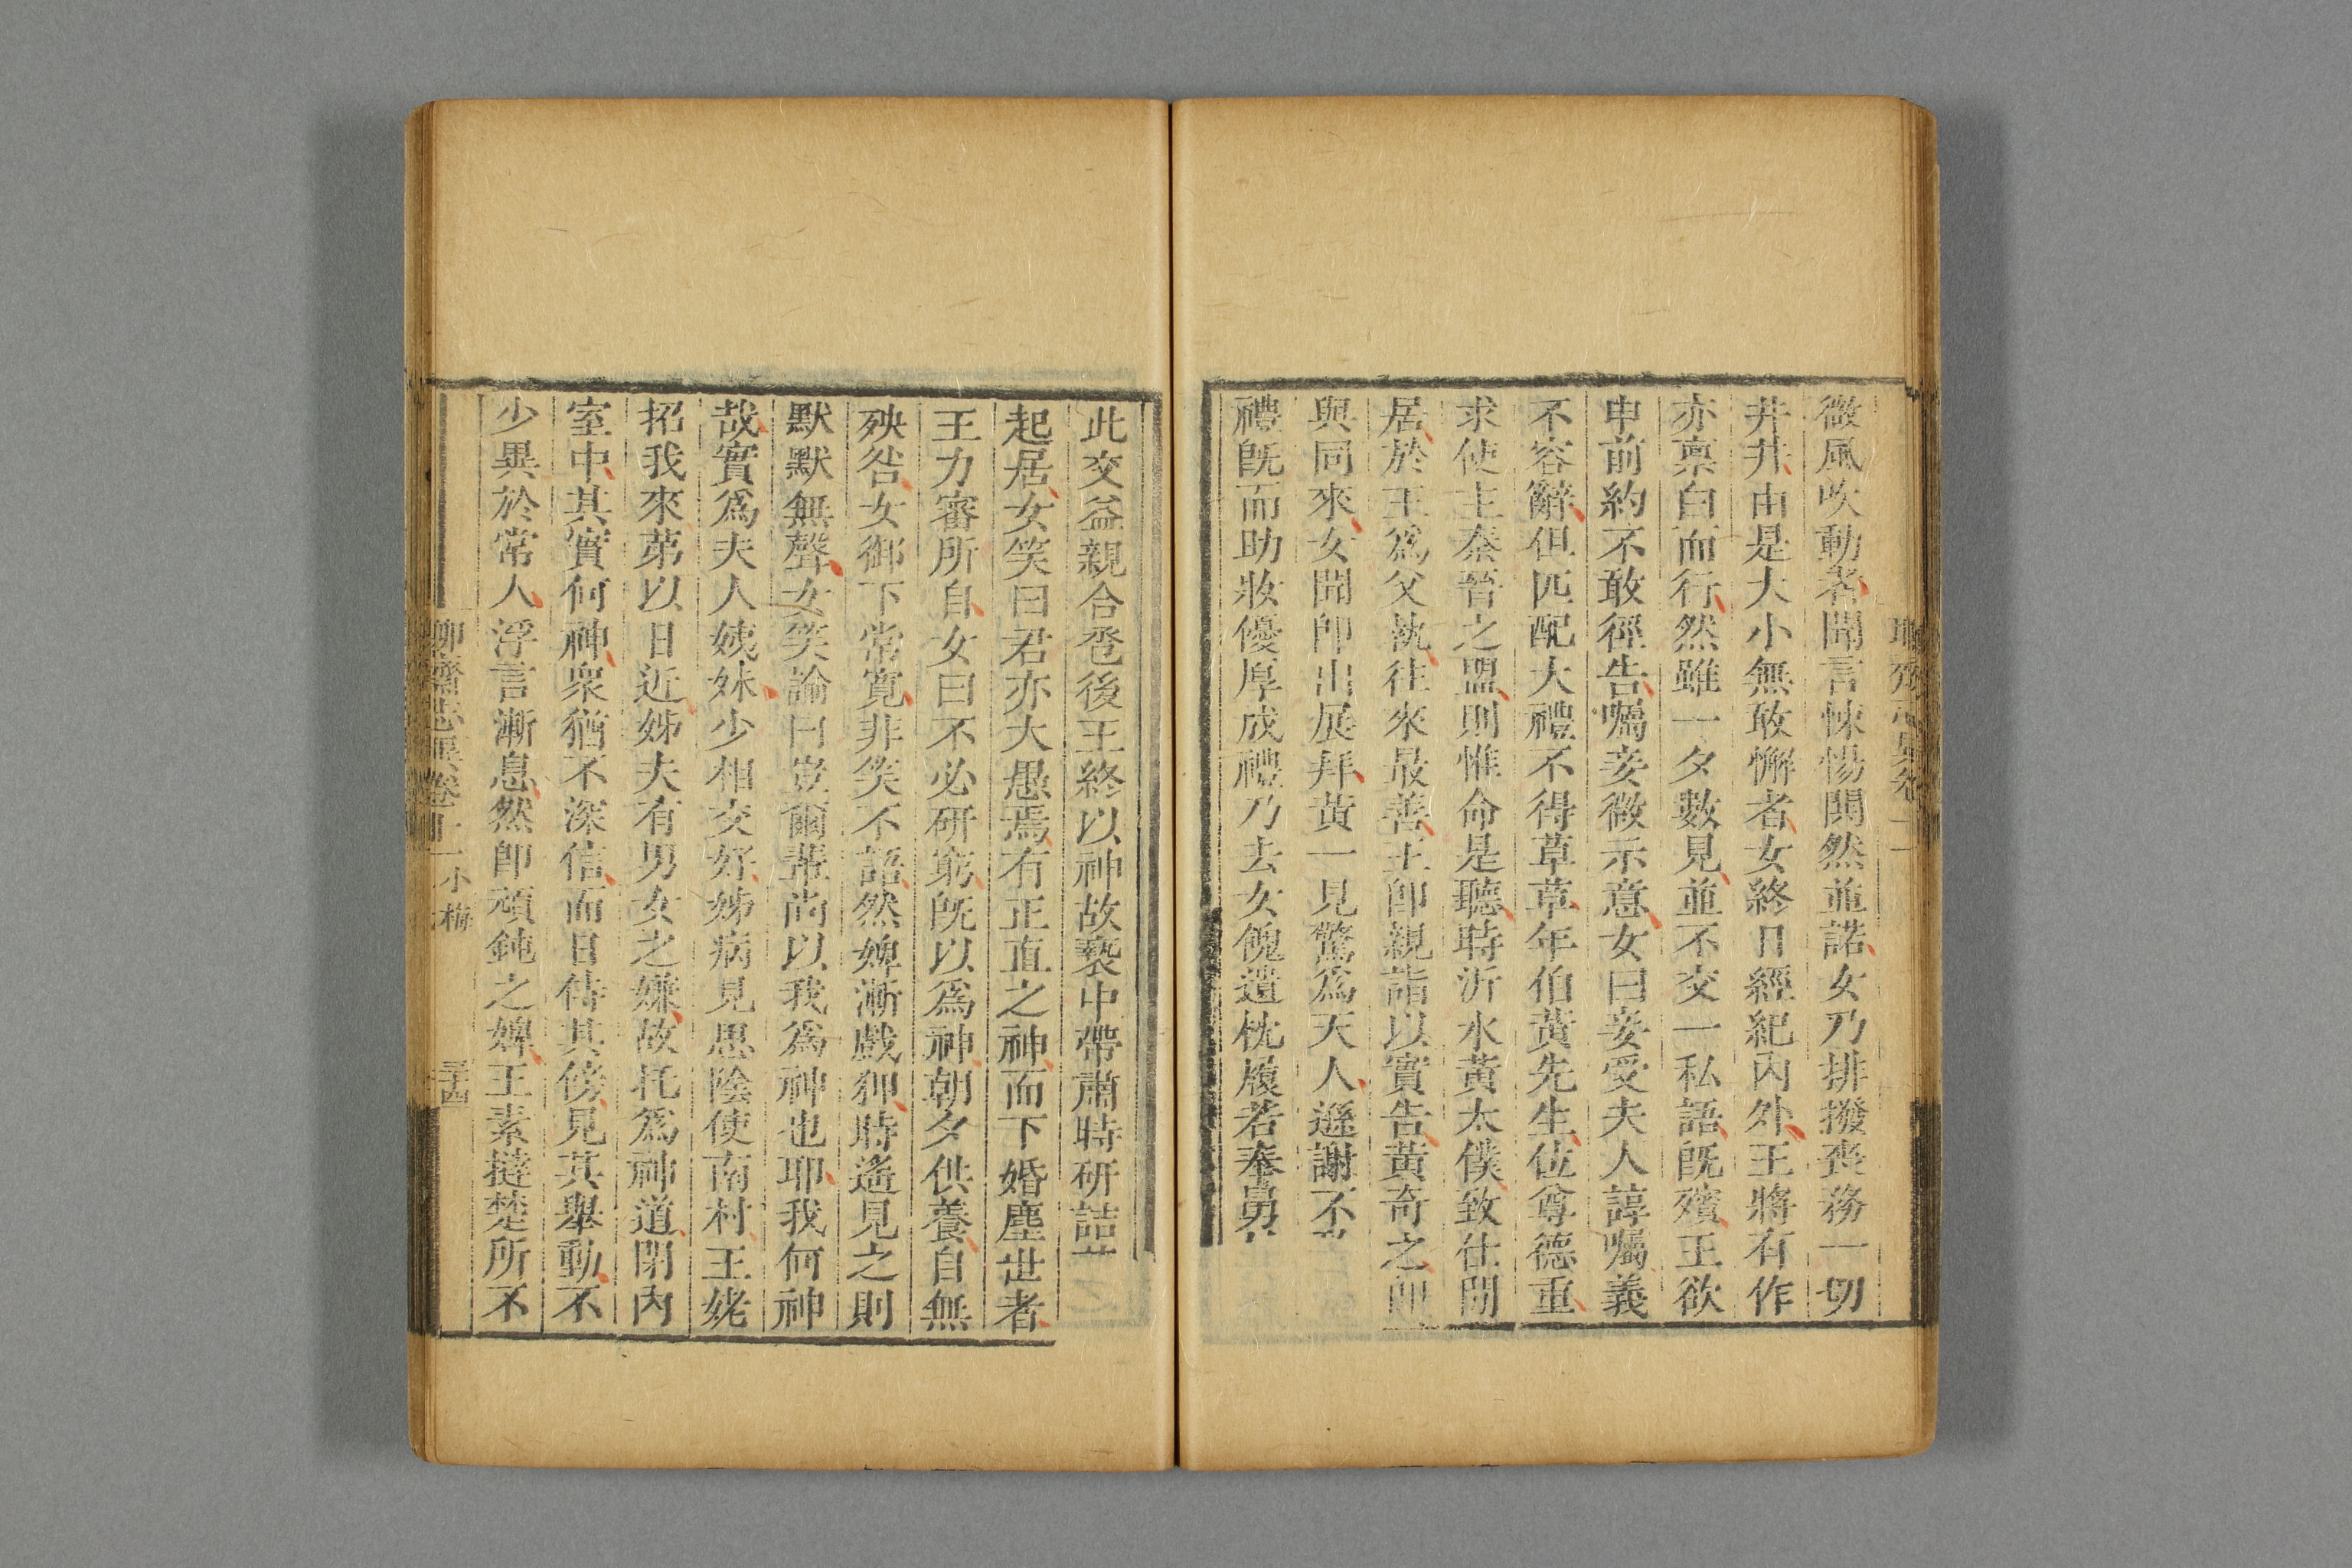 微風吹動者聞言悚惕鬨然並諾女乃排撥喪務一切
井井由是大小無敢懈者女終日經紀內外王將有作
亦稟白而行然雖一夕數見並不交一私語既殯王欲
申前約不敢徑告囑妾微示意女曰妾受夫人諄囑義
不容辭但匹配大禮不得草草年伯黃先生位尊德重
求使主秦晉之盟則惟命是聽時沂水黃太僕致仕閒
居於王為父執往來最善王即親詣以實告黃奇之即
與同來女聞即出展拜黃一見驚為天人遜謝不
禮既而助妝優厚成禮乃去女餽遺枕履若奉舅
此交益親合巹後王終以神故褻中帶肅時研詰
起居女笑曰君亦大愚焉有正直之神而下婚塵世者
王力審所自女曰不必研窮既以為神朝夕供養自無
殃咎女御下常寬非笑不語然婢漸戲狎時遙見之則
默默無聲女笑諭曰豈爾輩尚以我為神也耶我何神
哉實為夫人姨妹少相交好姊病見思陰使南村王姥
招我來第以日近姊夫有男女之嫌故托為神道閉內
室中其實何神衆猶不深信而日侍其傍見其舉動不
少異於常人浮言漸息然即頑鈍之婢王素撻楚所不
聊齋志異卷十一 小梅 三十四